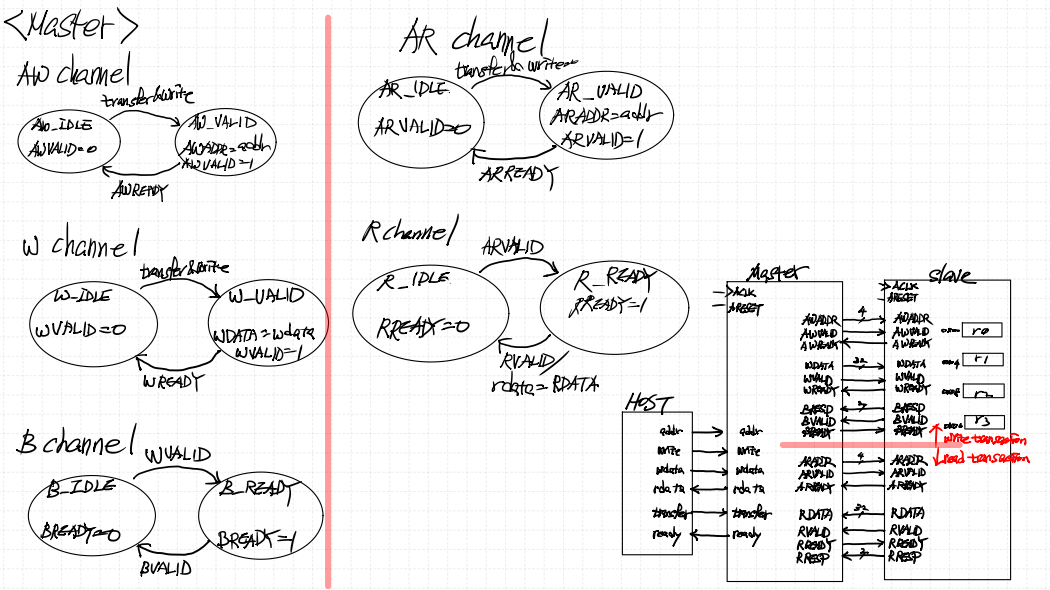 <Master>
AW channel
transfer&write
AW_IDLE
AWVALID=0
AW_VALID
AWADDR=addr
AWVALID=1
AWREADY
W channel
transfer&write
W_IDLE
WVALID=0
W_VALID
WDATA=wdata
WVALID=1
WREADY
B channel
WVALID
B_IDLE
BREADY=0
B_READY
BREADY=1
BVALID
AR channel
transfer&
AR_IDLE
ARVALID=0
AR_VALID
ARADDR=addr
ARVALID=1
ARREADY
R channel
ARVALID
R_IDLE
RREADY=0
R_READY
RREADY=1
RVALID/
rdata=RDATA
HOST
addr
write
wdata
rdata
transfer
ready
Master
ACLK
ARESET
AWADDR
AWVALID
AWREADY
WDATA
WVALID
WREADY
BRESP
BVALID
addr
write
wdata
rdata
transfer
ready
ARADDR
ARVALID
ARREADY
RDATA
RVALID
RREADY
RRESP
4
32
2
4
32
2
Slave
ACLK
ARESET
AWADDR
AWVALID
AWREADY
WDATA
WVALID
WREADY
BRESP
BVALID
ARADDR
ARVALID
ARREADY
RDATA
RVALID
RREADY
RRESP
r0
r1
r2
r3
write transaction
read transaction